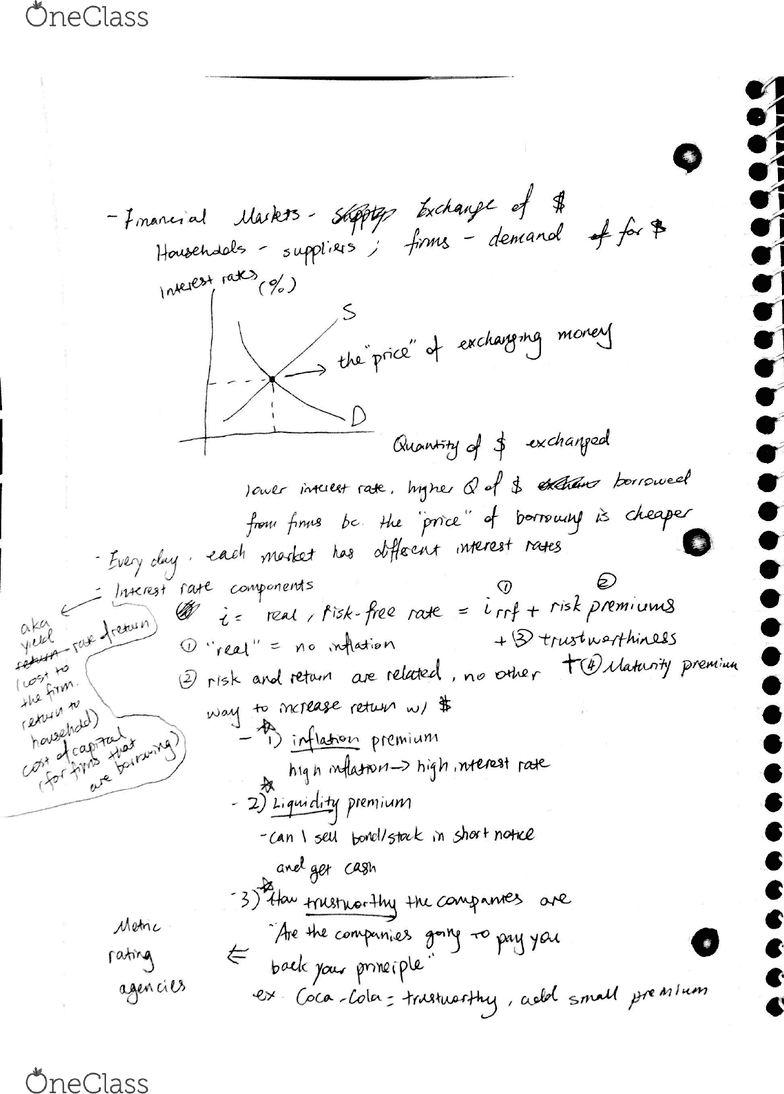 OneClass
- Financial Markets - Exchange of $
Households - suppliers ; firms - demand for $
Interest rates (%)
S
→ the "price" of exchanging money
D
Quantity of $ exchanged
lower interest rate, higher Q of $ borrowed
from firms bc. the "price" of borrowing is cheaper
- Every day, each market has different interest rates
- Interest rate components
① ②
i = real, risk-free rate = i rrf + risk premiums
① "real" = no inflation + ③ trustworthiness
② risk and return are related, no other + ④ Maturity premium
way to increase return w/ $
aka
yield
return - rate of return
(cost to
the firm.
return to
household)
cost of capital
(for firms that
are borrowing)
- 1) inflation premium
high inflation → high interest rate
- 2) Liquidity premium
- can I sell bond/stock in short notice
and get cash
- 3) How trustworthy the companies are
"Are the companies going to pay you
back your principle"
ex. Coca-Cola = trustworthy, add small premium
Metric
rating ⇐
agencies
OneClass